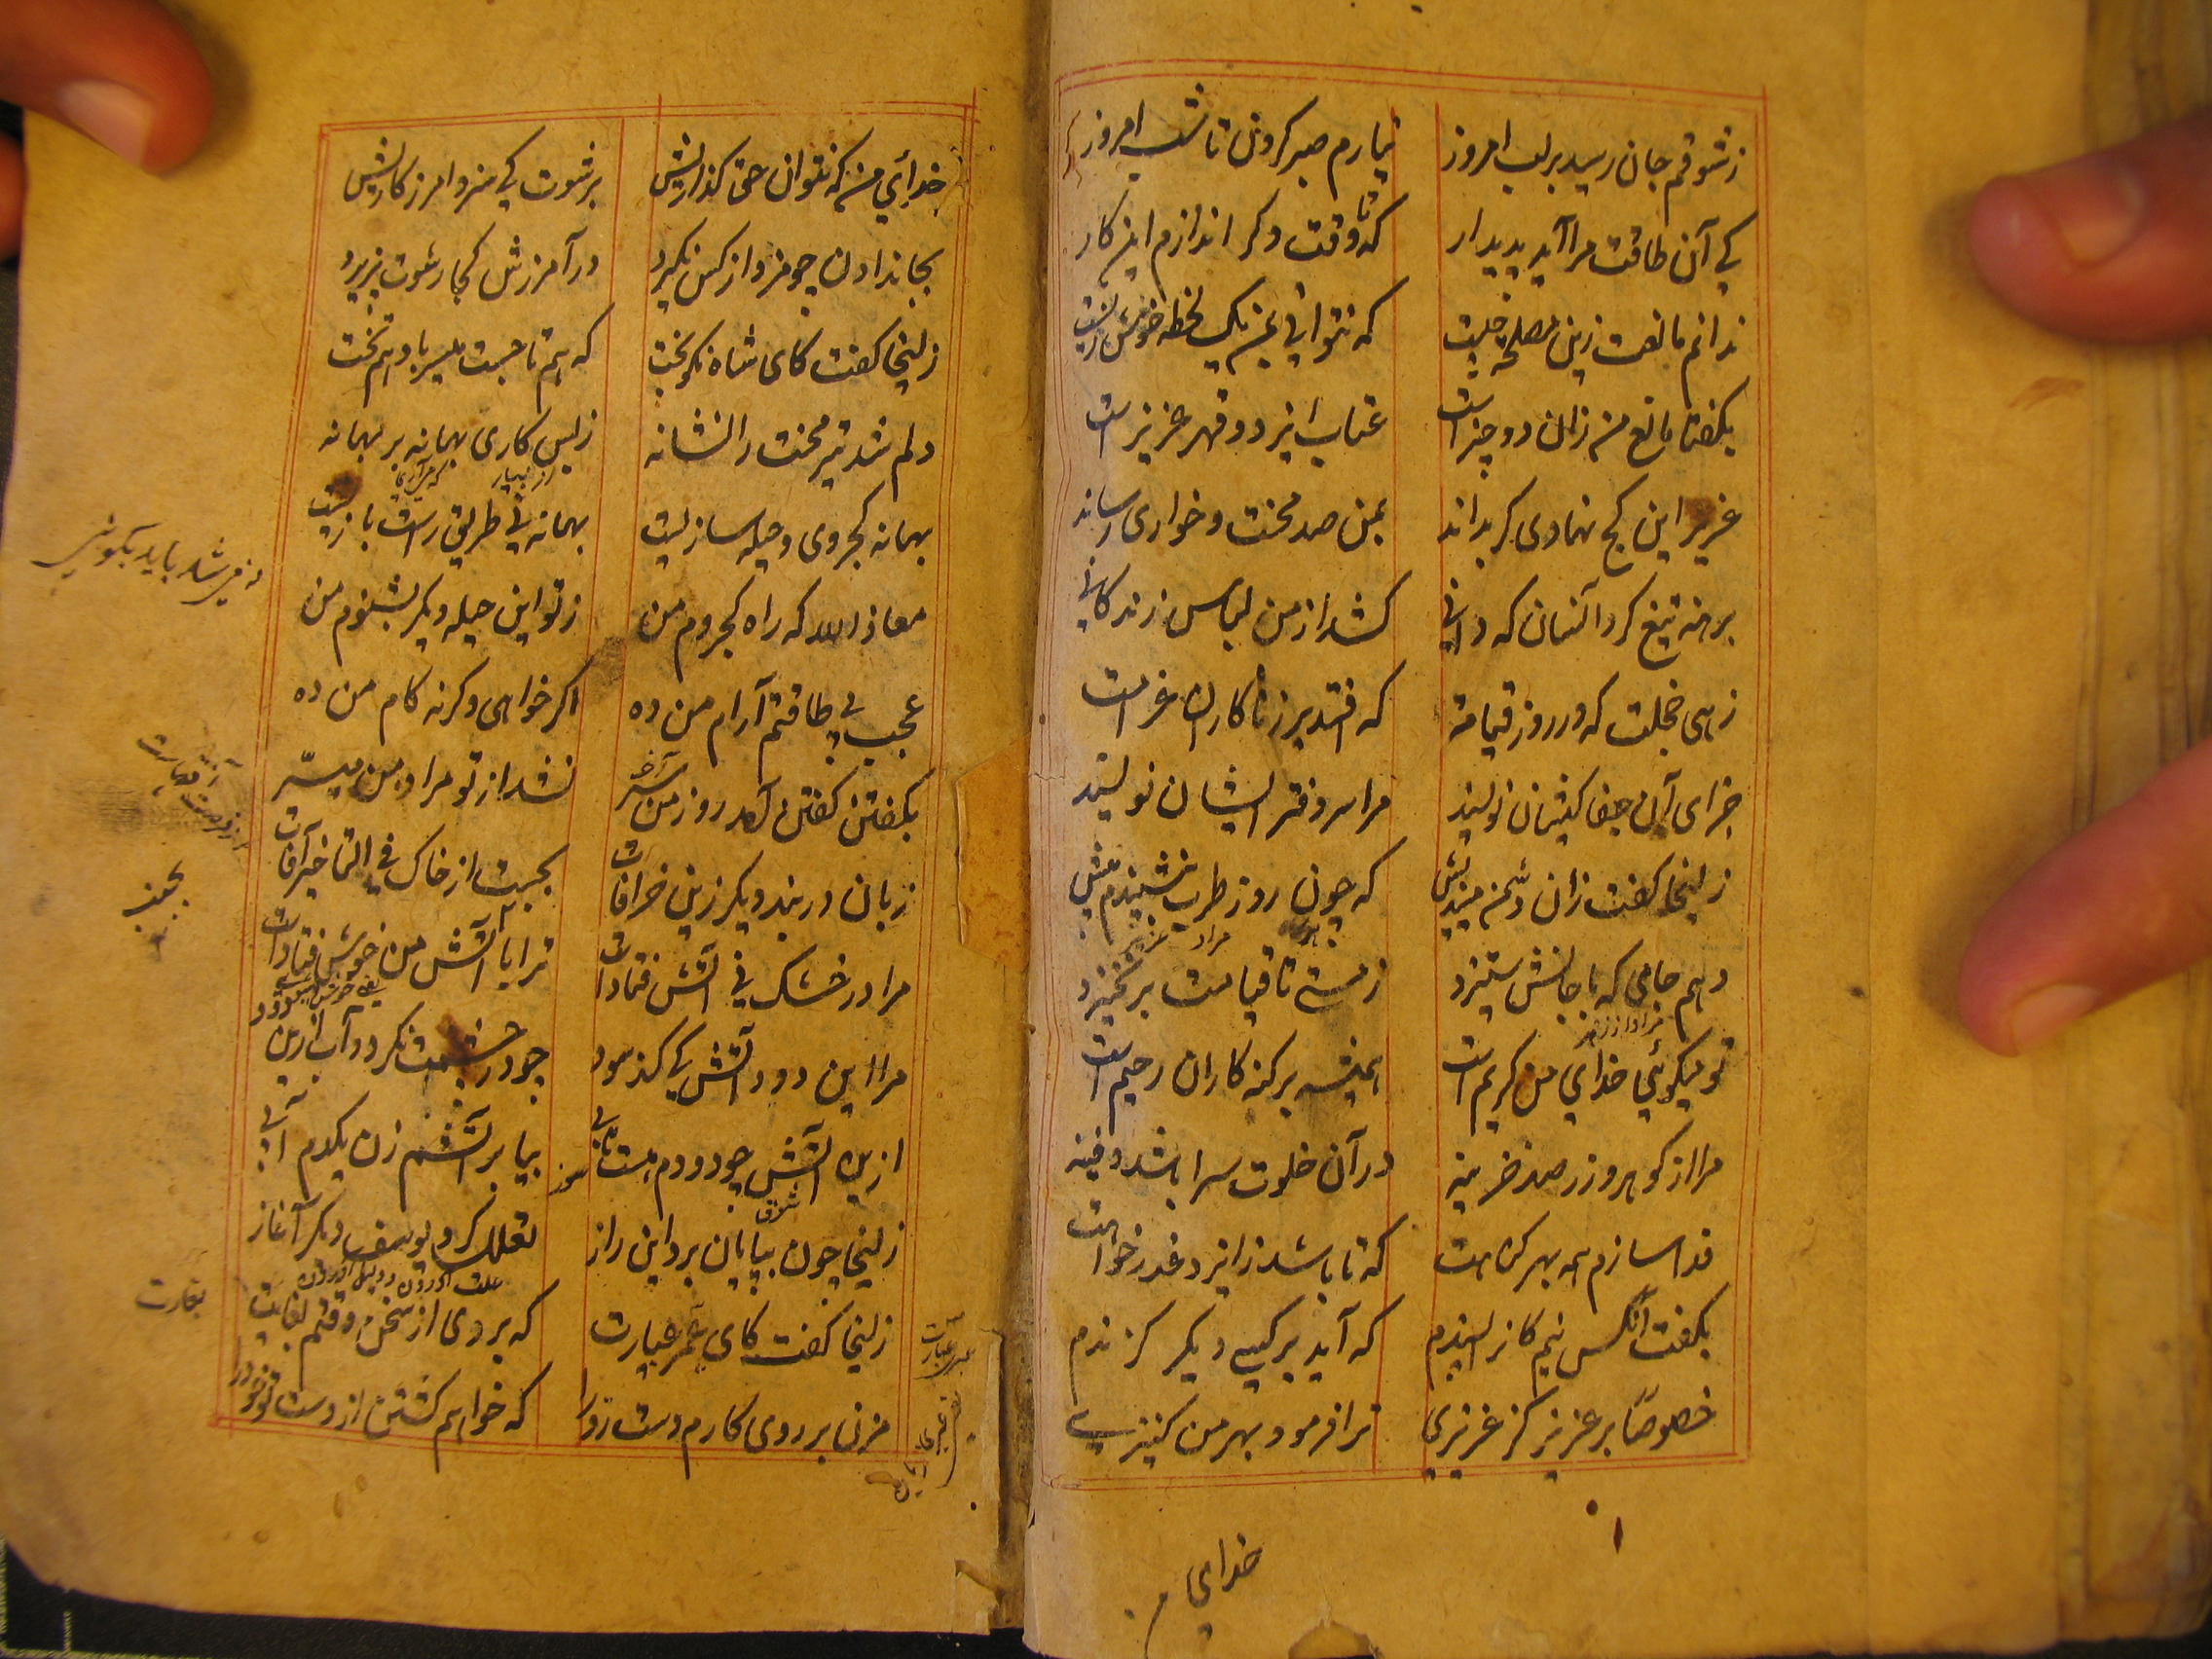 ز شوقم جان رسید بر لب امروز نیارم صبر کردن تا شب امروز
کی آن طاقت مرا آید پدیدار که تا وقت دکر اندازم این کار
ندانم مانعت زین مصلحت چیست که نتوانی بمن یک لحظه خوش زیست
بکفتا مانع من زان دو چیز است عتاب ایزد و قهر عزیز است
عزیز این کج نهادی کر بداند بمن صد محنت و خواری رساند
برهنه تیغ کرد آنسان که دانی کشد از من لباس زندکانی
زهی خجلت که در روز قیامت که افتد بر زناکاران غرامت
جزای آن جفا کیشان نویسند مرا سر دفتر ایشان نویسند
زلیخا کفت زان دشمن میندیش که چون روز طرب بنشیندم پیش
دهم جامی که با جانش ستیزد ز مستی تا قیامت بر نخیزد
تو میکوئی خدای من کریم است همیشه بر کنه کاران رحیم است
مرا از کوهر و زر صد خزینه در آن خلوت سرا باشد دفینه
فدا سازم همه بهر کناهت که تا باشد ز ایزد عذر خواهت
بکفت آنکس نیم کاز پسندم که آید بر کسی دیکر کزندم
خصوصا بر عزیز کز عزیزی ترا فرمود بهر من کنیزی
خدای م
خدای من که نتوان حق کذاریش برشوت کی منزو امرزکاریش
بجاندادن چو مزد از کس نکیرد در آمرزش کجا رشوت پذیرد
زلیخا کفت کای شاه نکو بخت که هم تاجت میسر باد هم تخت
دلم شد تیر محنت را نشانه ز بس کاری بهانه بر بهانه
بهانه کجروی و حیله سازیست بهانه نی طریق راست بازیست
معاذ الله که راه کجروم من ز تو این حیله دیکر بشنوم من
عجب بی طاقتم آرام من ده اکر خواهی وکرنه کام من ده
بکفتن کفتن آمد روز من سر نشد از تو مراد من میسر
زبان در بند دیکر زین خرافات بجست از خاک فی التاخیر آفات
مرا در خشک نی آتش فتادات ترا با آتش من خوش فتادات
مرا این دود آتش کی کند سود چو در چشمت نکردد آب ازین دود
ازین آتش چو دودم هست تابی بیا بر آتشم زن یکدم آبی
زلیخا چون بپایان برد این راز تعلل کرد یوسف دیکر آغاز
زلیخا کفت کای عبر عبارت که بردی از سخن وقتم بغارت
مزن بر روی کارم دست رد را که خواهم کشتن از دست تو خود را
بغارت